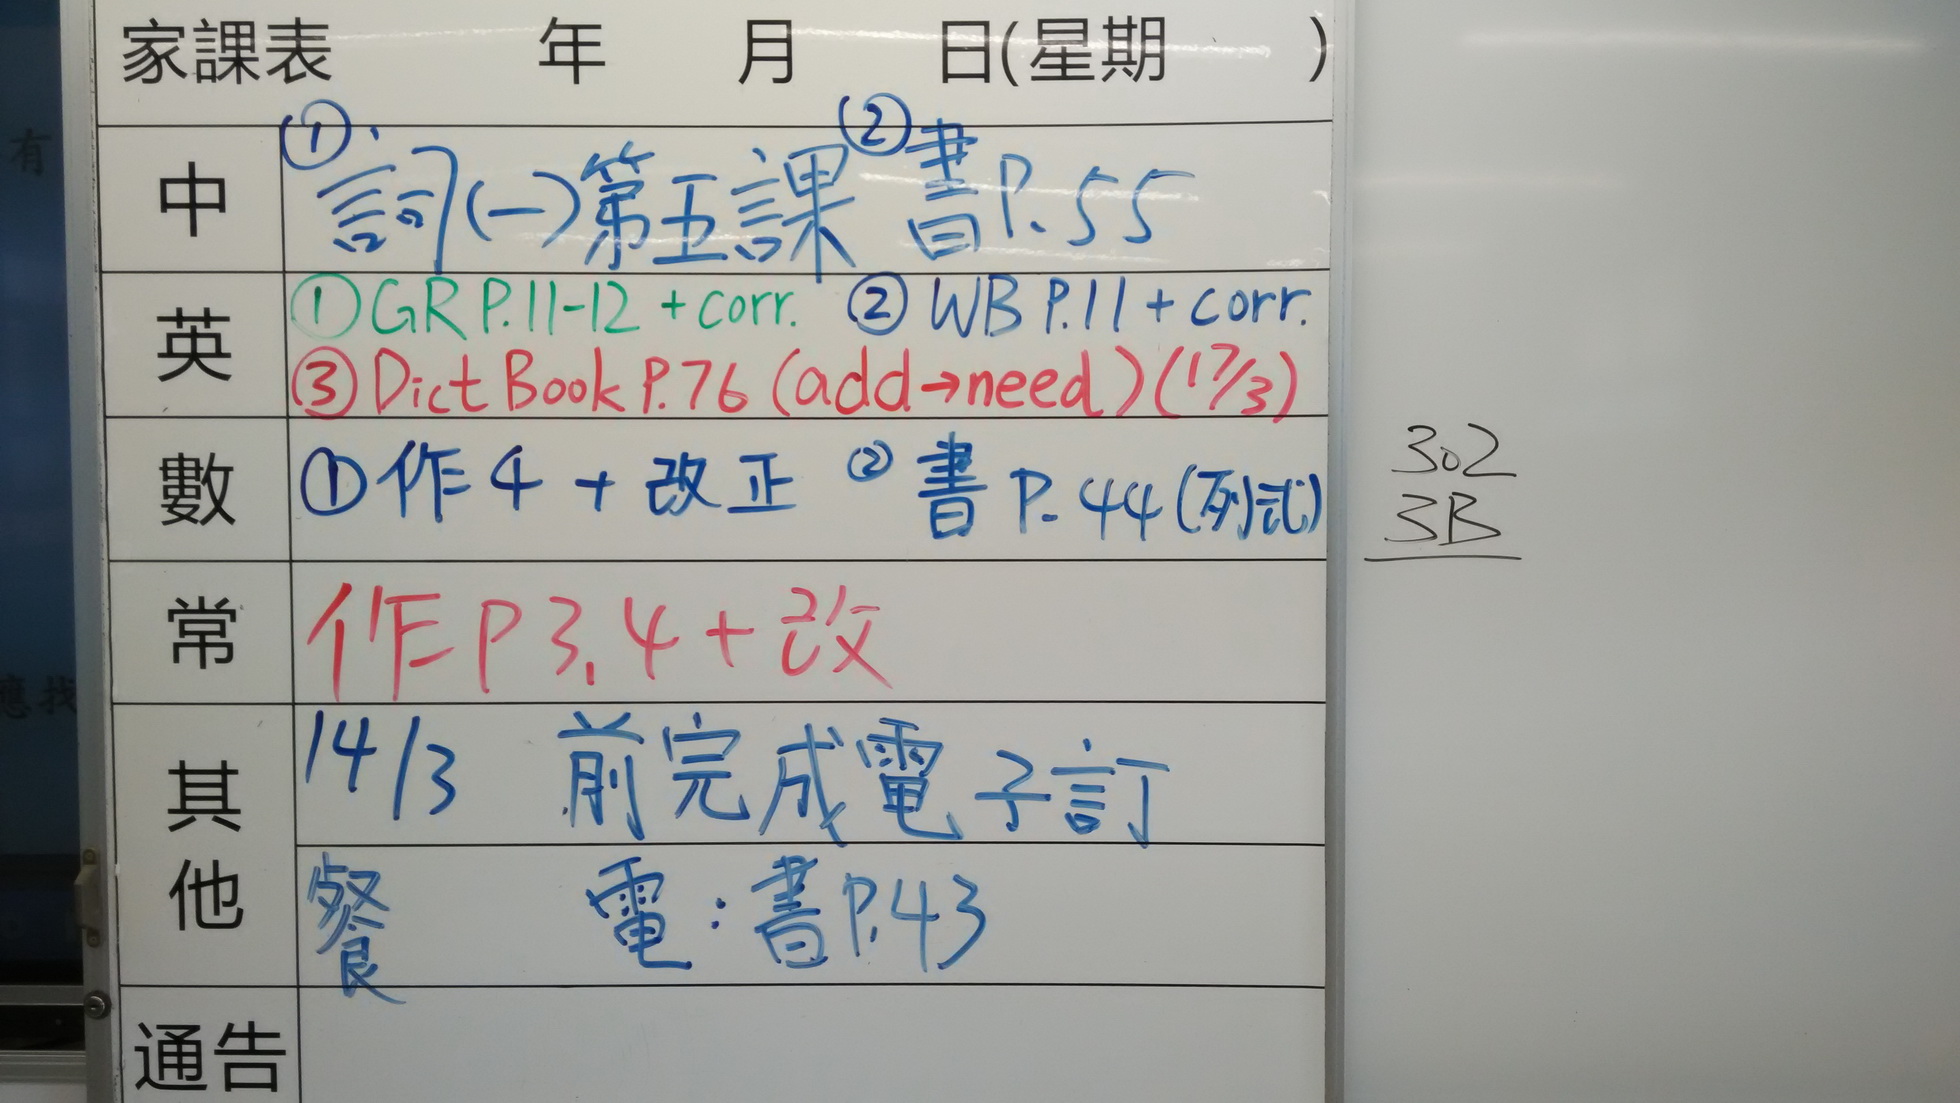 家課表 年 月 日(星期 )
中 ① 詞(一)第五課 ② 書P.55
英 ① GR P.11-12 + corr. ② WB P.11 + corr.
③ Dict Book P.76 (add→need) (17/3)
數 ① 作 4 + 改正 ② 書 P.44 (列式)
常 作 P 3,4 + 改
其他 14/3 前完成電子訂
餐 電:書P.43
通告
302
3B
有
應找